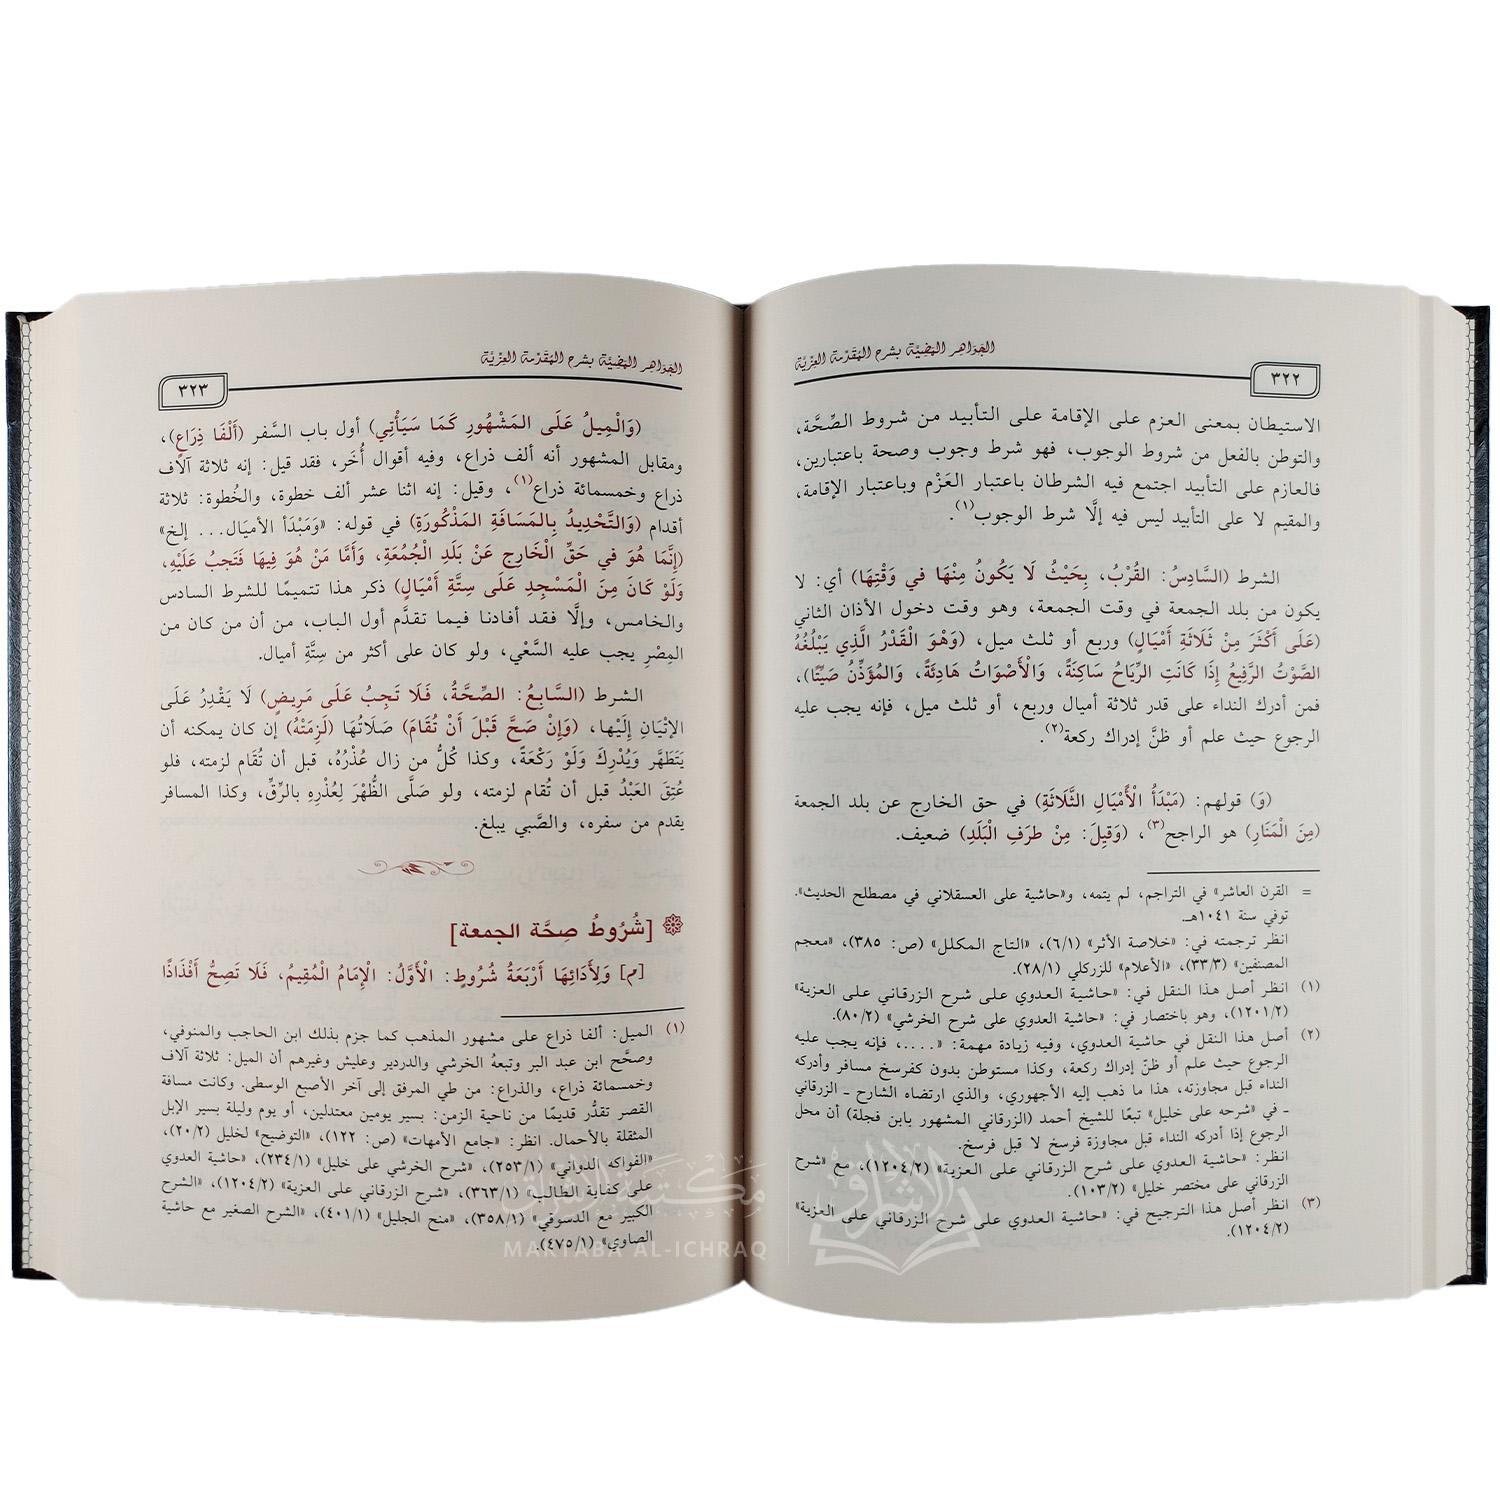 الجَوَاهِر المُضِيَّة بشَرح المُقَدِّمة العِزِّيَّة
٣٢٢
الاستيطان بمعنى العزم على الإقامة على التأبيد من شروط الصِّحَّة،
والتوطن بالفعل من شروط الوجوب، فهو شرط وجوب وصحة باعتبارين،
فالعازم على التأبيد اجتمع فيه الشرطان باعتبار العَزْم وباعتبار الإقامة،
والمقيم لا على التأبيد ليس فيه إلَّا شرط الوجوب(١).
الشرط (السَّادِسُ: القُرْبُ، بِحَيْثُ لَا يَكُونُ مِنْهَا في وَقْتِهَا) أي: لا
يكون من بلد الجمعة في وقت الجمعة، وهو وقت دخول الأذان الثاني
(عَلَى أَكْثَرَ مِنْ ثَلَاثَةِ أَمْيَالٍ) وربع أو ثلث ميل، (وَهْوَ الْقَدْرُ الَّذِي يَبْلُغُهُ
الصَّوْتُ الرَّفِيعُ إِذَا كَانَتِ الرِّيَاحُ سَاكِنَةً، وَالْأَصْوَاتُ هَادِئَةً، وَالمُؤَذِّنُ صَيِّتًا)،
فمن أدرك النداء على قدر ثلاثة أميال وربع، أو ثلث ميل، فإنه يجب عليه
الرجوع حيث علم أو ظنَّ إدراك ركعة(٢).
(وَ) قولهم: (مَبْدَأُ الْأَمْيَالِ الثَّلَاثَةِ) في حق الخارج عن بلد الجمعة
(مِنَ الْمَنَارِ) هو الراجح(٣)، (وَقِيلَ: مِنْ طَرَفِ الْبَلَدِ) ضعيف.
= القرن العاشر» في التراجم، لم يتمه، و«حاشية على العسقلاني في مصطلح الحديث».
توفي سنة ١٠٤١هـ.
انظر ترجمته في: «خلاصة الأثر» (٦/١)، «التاج المكلل» (ص: ٣٨٥)، «معجم
المصنفين» (٣٣/٣)، «الأعلام» للزركلي (٢٨/١).
(١) انظر أصل هذا النقل في: «حاشية العدوي على شرح الزرقاني على العزية»
(١٢٠١/٢)، وهو باختصار في: «حاشية العدوي على شرح الخرشي» (٨٠/٢).
(٢) أصل هذا النقل في حاشية العدوي، وفيه زيادة مهمة: «....، فإنه يجب عليه
الرجوع حيث علم أو ظنّ إدراك ركعة، وكذا مستوطن بدون كفرسخ مسافر وأدركه
النداء قبل مجاوزته، هذا ما ذهب إليه الأجهوري، والذي ارتضاه الشارح ـ الزرقاني
ـ في «شرحه على خليل» تبعًا للشيخ أحمد (الزرقاني المشهور بابن فجلة) أن محل
الرجوع إذا أدركه النداء قبل مجاوزة فرسخ لا قبل فرسخ.
انظر: «حاشية العدوي على شرح الزرقاني على العزية» (١٢٠٤/٢)، مع «شرح
الزرقاني على مختصر خليل» (١٠٣/٢).
(٣) انظر أصل هذا الترجيح في: «حاشية العدوي على شرح الزرقاني على العزية»
(١٢٠٤/٢).
الجَوَاهِر المُضِيَّة بشَرح المُقَدِّمة العِزِّيَّة
٣٢٣
(وَالْمِيلُ عَلَى المَشْهُورِ كَمَا سَيَأْتِي) أول باب السَّفر (أَلْفَا ذِرَاعٍ)،
ومقابل المشهور أنه ألف ذراع، وفيه أقوال أُخَر، فقد قيل: إنه ثلاثة آلاف
ذراع وخمسمائة ذراع(١)، وقيل: إنه اثنا عشر ألف خطوة، والخُطوة: ثلاثة
أقدام (وَالتَّحْدِيدُ بِالمَسَافَةِ المَذْكُورَةِ) في قوله: «وَمَبْدَأ الأميَال... إلخ»
(إِنَّمَا هُوَ في حَقِّ الْخَارِجِ عَنْ بَلَدِ الْجُمُعَةِ، وَأَمَّا مَنْ هُوَ فِيهَا فَتَجِبُ عَلَيْهِ،
وَلَوْ كَانَ مِنَ الْمَسْجِدِ عَلَى سِتَّةِ أَمْيَالٍ) ذكر هذا تتميمًا للشرط السادس
والخامس، وإلَّا فقد أفادنا فيما تقدَّم أول الباب، من أن من كان من
المِصْرِ يجب عليه السَّعْي، ولو كان على أكثر من سِتَّةِ أميال.
الشرط (السَّابِعُ: الصِّحَّةُ، فَلَا تَجِبُ عَلَى مَرِيضٍ) لَا يَقْدِرُ عَلَى
الإتْيَانِ إِلَيْها، (وَإِنْ صَحَّ قَبْلَ أَنْ تُقَامَ) صَلَاتُهَا (لَزِمَتْهُ) إن كان يمكنه أن
يَتَطَهَّرَ وَيُدْرِكَ وَلَوْ رَكْعَةً، وكذا كُلُّ من زال عُذْرُهُ، قبل أن تُقَام لزمته، فلو
عُتِقَ العَبْدُ قبل أن تُقام لزمته، ولو صَلَّى الظُّهْرَ لِعُذْرِهِ بالرِّقِّ، وكذا المسافر
يقدم من سفره، والصَّبي يبلغ.
[شُرُوطُ صِحَّة الجمعة]
[م] وَلِأَدَائِهَا أَرْبَعَةُ شُرُوطٍ: الْأَوَّلُ: الْإِمَامُ الْمُقِيمُ، فَلَا تَصِحُّ أَفْذَاذًا
(١) الميل: ألفا ذراع على مشهور المذهب كما جزم بذلك ابن الحاجب والمنوفي،
وصحَّح ابن عبد البر وتبعهُ الخرشي والدردير وعليش وغيرهم أن الميل: ثلاثة آلاف
وخمسمائة ذراع، والذراع: من طي المرفق إلى آخر الأصبع الوسطى. وكانت مسافة
القصر تقدُّر قديمًا من ناحية الزمن: بسير يومين معتدلين، أو يوم وليلة بسير الإبل
المثقلة بالأحمال. انظر: «جامع الأمهات» (ص: ١٢٢)، «التوضيح» لخليل (٢٠/٢)،
«الفواكه الدواني» (٢٥٣/١)، «شرح الخرشي على خليل» (٢٣٤/١)، «حاشية العدوي
على كفاية الطالب» (٣٦٣/١)، «شرح الزرقاني على العزية» (١٢٠٤/٢)، «الشرح
الكبير مع الدسوقي» (٣٥٨/١)، «منح الجليل» (٤٠١/١)، «الشرح الصغير مع حاشية
الصاوي» (٤٧٥/١).
مكتبة الإشراق
الإشراق
MAKTABA AL-ICHRAQ